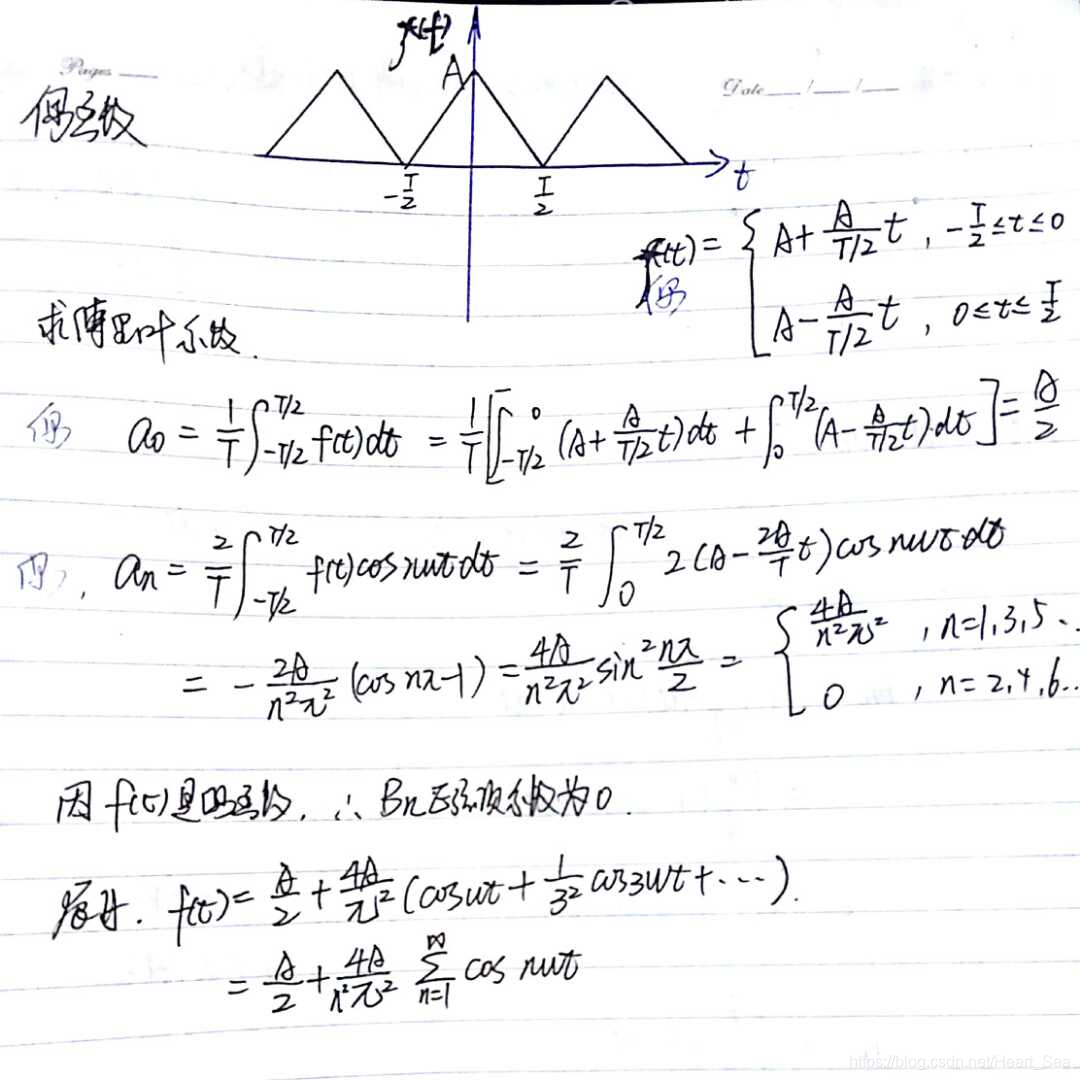 Pages
Date / /
f(t)
A
偶函数
-T/2
T/2
t
f(t) = { A + A/(T/2) t , -T/2 ≤ t ≤ 0
偶
A - A/(T/2) t , 0 ≤ t ≤ T/2
求傅里叶系数.
偶 a₀ = 1/T ∫_{-T/2}^{T/2} f(t)dt = 1/T [∫_{-T/2}^{0} (A + A/(T/2) t)dt + ∫_{0}^{T/2} (A - A/(T/2) t)·dt] = A/2
偶, aₙ = 2/T ∫_{-T/2}^{T/2} f(t)cos nωt dt = 2/T ∫_{0}^{T/2} 2(A - 2A/T t)cos nωt dt
= - 2A/(n²π²) (cos nπ - 1) = 4A/(n²π²) sin² nπ/2 = { 4A/(n²π²) , n=1,3,5...
0 , n=2,4,6...
因f(t)是偶函数, ∴ Bn正弦项系数为0.
f(t) = A/2 + 4A/π² (cos ωt + 1/3² cos3ωt + ···).
= A/2 + 4A/(n²π²) ∑_{n=1}^{∞} cos nωt
https://blog.csdn.net/Heart_Sea